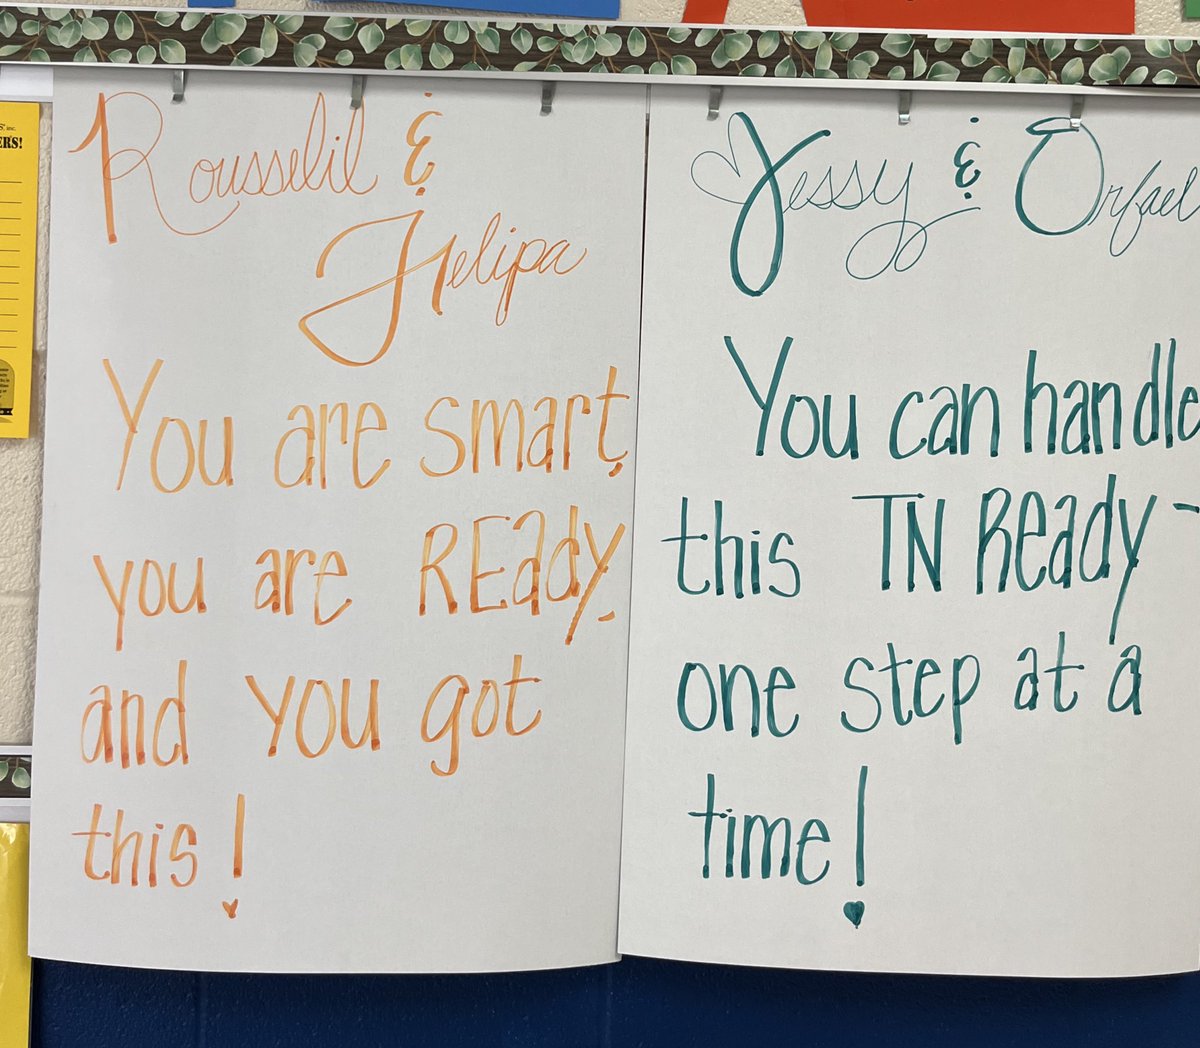 Rousselil &
Felipa
You are smart,
you are REady-
and you got
this!
Jessy & Orfael
You can handle
this TN Ready-
one step at a
time!
inc.
ERS!